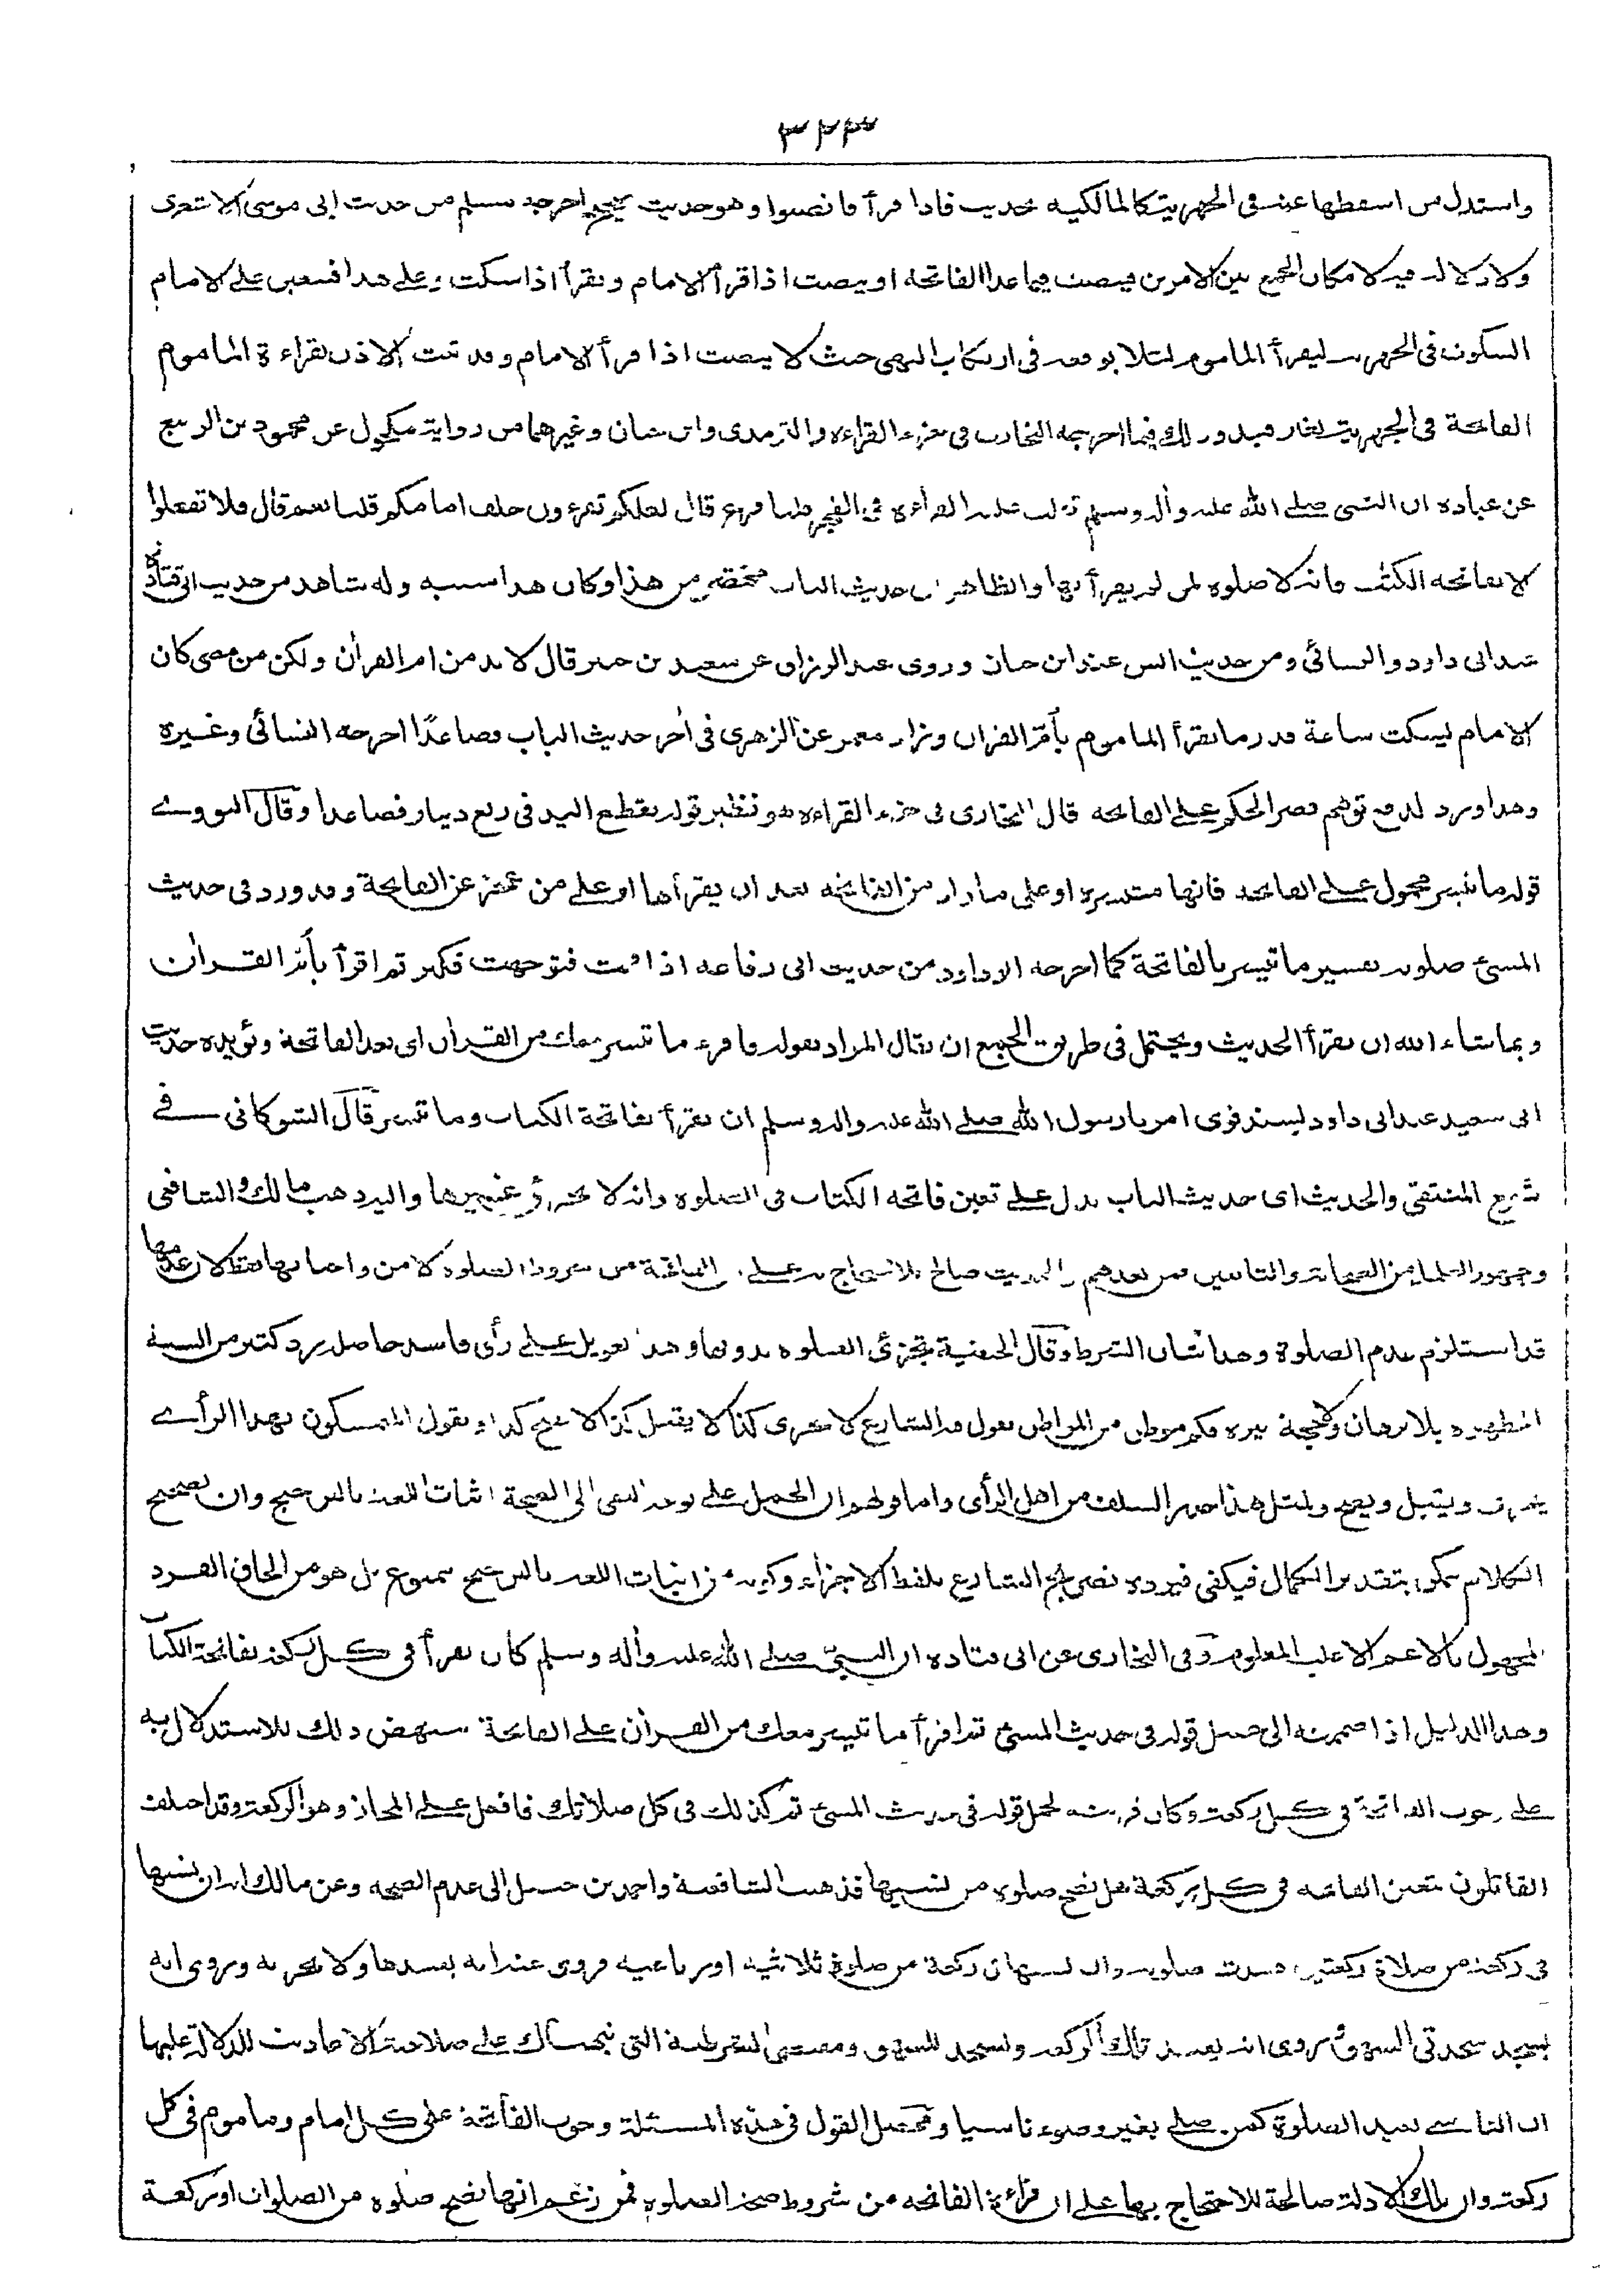 ٣٢٣
واستدل من اسقطها عنه فى الجهرية كالمالكيه بحديث فاذا قرأ فانصتوا وهو حديث صحيح اخرجه مسلم من حديث ابى موسى الاشعرى
ولا دلالة فيه لامكان الجمع بين الامرين فينصت فيما عدا الفاتحة او ينصت اذا قرأ الامام ويقرأ اذا سكت وعلى هذا فيتعين على الامام
السكوت فى الجهرية ليقرأ الماموم لئلا يوقعه فى ارتكاب النهى حيث لا ينصت اذا قرأ الامام وقد ثبت الاذن بقراءة الماموم
الفاتحة فى الجهرية بغير قيد وذلك فيما اخرجه البخارى فى جزء القراءة والترمذى وابن حبان وغيرهما من رواية مكحول عن محمود بن الربيع
عن عبادة ان النبى صلى الله عليه وآله وسلم ثقلت عليه القراءة فى الفجر فلما فرغ قال لعلكم تقرءون خلف امامكم قلنا نعم قال فلا تفعلوا
الا بفاتحة الكتاب فانه لا صلوة لمن لم يقرأ بها والظاهر ان حديث الباب مختصر من هذا وكان هذا سببه وله شاهد من حديث ابى قتادة
عند ابى داود والنسائى ومن حديث انس عند ابن حبان وروى عبد الرزاق عن سعيد بن جبير قال لا بد من ام القرآن ولكن من مضى كان
الامام يسكت ساعة قدر ما يقرأ الماموم بأم القرآن وزاد معمر عن الزهرى فى آخر حديث الباب فصاعدًا اخرجه النسائى وغيره
وهذا ورد لدفع توهم قصر الحكم على الفاتحة قال البخارى فى جزء القراءة هو نظير قوله يقطع اليد فى ربع دينار فصاعدا وقال النووى
قوله ما تيسر محمول على الفاتحة فانها متيسرة او على ما زاد من الفاتحة بعد ان يقرأها او على من عجز عن الفاتحة وقد ورد فى حديث
المسئ صلوته تفسير ما تيسر بالفاتحة كما اخرجه ابو داود من حديث ابى رفاعه اذا قمت فتوجهت فكبر ثم اقرأ بأم القرآن
وبما شاء الله ان تقرأ الحديث ويحتمل فى طريق الجمع ان يقال المراد بقوله فاقرء ما تيسر معك من القرآن اى بعد الفاتحة ويؤيده حديث
ابى سعيد عند ابى داود بسند قوى امرنا رسول الله صلى الله عليه وآله وسلم ان نقرأ بفاتحة الكتاب وما تيسر قال الشوكانى فى
شرح المنتقى والحديث اى حديث الباب يدل على تعين فاتحة الكتاب فى الصلوة وانه لا يجزئ غيرها واليه ذهب مالك والشافعى
وجمهور العلماء من الصحابة والتابعين فمن بعدهم والحديث صالح للاحتجاج به على ان الفاتحة من شروط الصلوة لا من واجباتها فقط لان عدمها
قد استلزم عدم الصلوة وهذا شان الشرط وقال الحنفية تجزئ الصلوة بدونها وهذا تعويل على رأى فاسد حاصله رد كثير من السنة
المطهرة بلا برهان ولا حجة نيرة فكم موطن من المواطن يقول فيه الشارع لا يجزى كذا لا يقبل كذا لا يصح كذا ويقول المتمسكون بهذا الرأى
يجزئ ويقبل ويصح ولمثل هذا حذر السلف من اهل الرأى واما قولهم ان الحمل على توجه النفى الى الصحة اثبات اللغة بالترجيح وان تصحيح
الكلام ممكن بتقدير الكمال فيكفى فيرده تصريح الشارع بلفظ الاجزاء وكونه من اثبات اللغة بالترجيح ممنوع بل هو من الحاق الفرد
المجهول بالاعم الاغلب المعلوم وفى البخارى عن ابى قتادة ان النبى صلى الله عليه وآله وسلم كان يقرأ فى كل ركعة بفاتحة الكتاب
وهذا الدليل اذا ضممته الى حمل قوله فى حديث المسئ ثم اقرأ ما تيسر معك من القرآن على الفاتحة ينتهض ذلك للاستدلال به
على وجوب الفاتحة فى كل ركعة وكان قرينة لحمل قوله فى حديث المسئ ثم كذلك فى كل صلاتك فافعل على المجاز وهو الركعة وقد اختلف
القائلون بتعين الفاتحة فى كل ركعة هل تصح صلوة من نسيها فذهب الشافعية واحمد بن حنبل الى عدم الصحة وعن مالك انه ان نسيها
فى ركعة من صلاة ركعتين فسدت صلوته وان نسيها فى ركعة من صلوة ثلاثية او رباعية فروى عنه انه يفسدها ولا تجزيه وروى انه
يسجد سجدتى السهو وروى انه يعيد تلك الركعة ويسجد للسهو ومقتضى الشرطية التى نبهناك على صلاحية الاحاديث للدلالة عليها
ان الناسى يعيد الصلوة كمن صلى بغير وضوء ناسيا ومحصل القول فى هذه المسئلة وجوب الفاتحة على كل امام وماموم فى كل
ركعة وان تلك الادلة صالحة للاحتجاج بها على ان قراءة الفاتحة من شروط صحة الصلوة فمن زعم انها تصح صلوة من الصلوات او ركعة